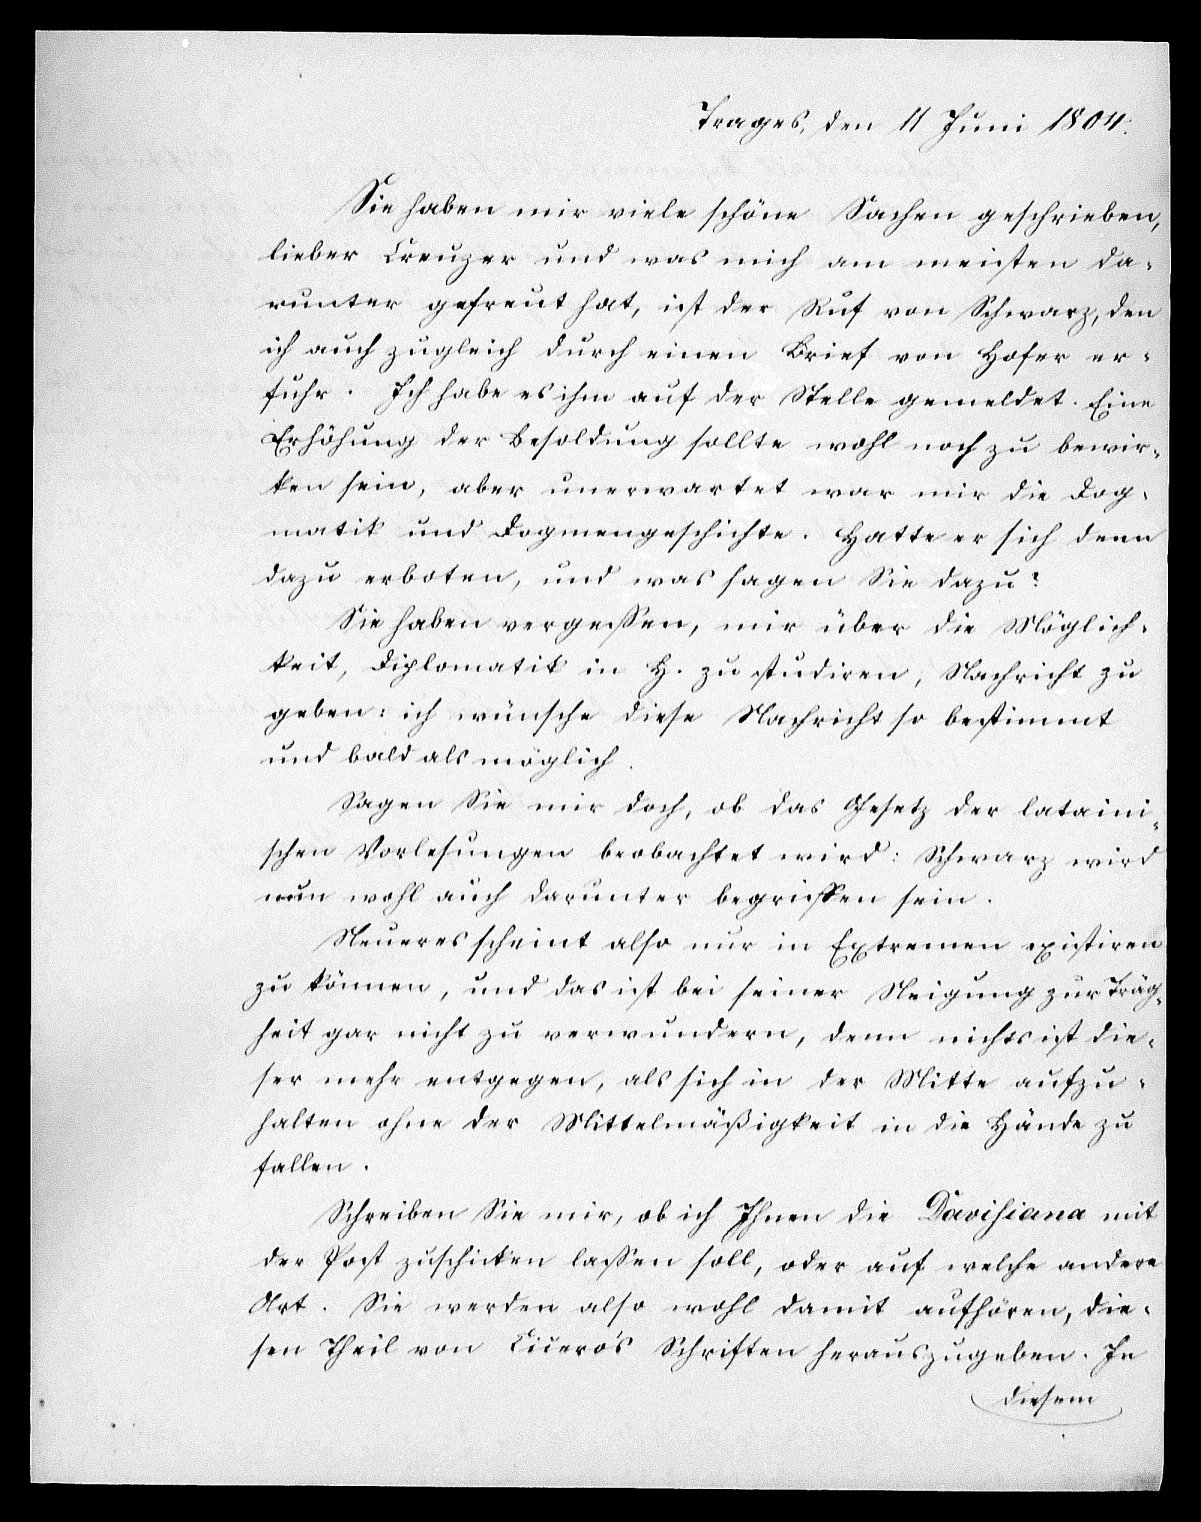 Trages, den 11 Juni 1804.
Sie haben mir viele schöne Sachen geschrieben,
lieber Creuzer und was mich am meisten da-
runter gefreut hat, ist der Ruf von Schwarz, den
ich auch zugleich durch einen Brief von Hofer er-
fuhr. Ich habe es ihm auf der Stelle gemeldet. Eine
Erhöhung der Besoldung sollte wohl noch zu bewir-
ken sein, aber unerwartet war mir die Dog-
matik und Dogmengeschichte. Hatte er sich denn
dazu erboten, und was sagen Sie dazu?
Sie haben vergessen, mir über die Möglich-
keit, Diplomatik in H. zu studiren, Nachricht zu
geben: ich wünsche diese Nachricht so bestimmt
und bald als möglich.
Sagen Sie mir doch, ob das Gesetz der lataini-
schen Vorlesungen beobachtet wird: Schwarz wird
nun wohl auch darunter begriffen sein.
Neueres scheint also nur in Extremen existiren
zu können, und das ist bei seiner Neigung zur Träg-
heit gar nicht zu verwundern, denn nichts ist die-
ser mehr entgegen, als sich in der Mitte aufzu-
halten ohne der Mittelmäßigkeit in die Hände zu
fallen.
Schreiben Sie mir, ob ich Ihnen die Davisiana mit
der Post zuschicken lassen soll, oder auf welche andere
Art. Sie werden also wohl damit aufhören, die-
sen Theil von Cicero's Schriften herauszugeben. In
diesem